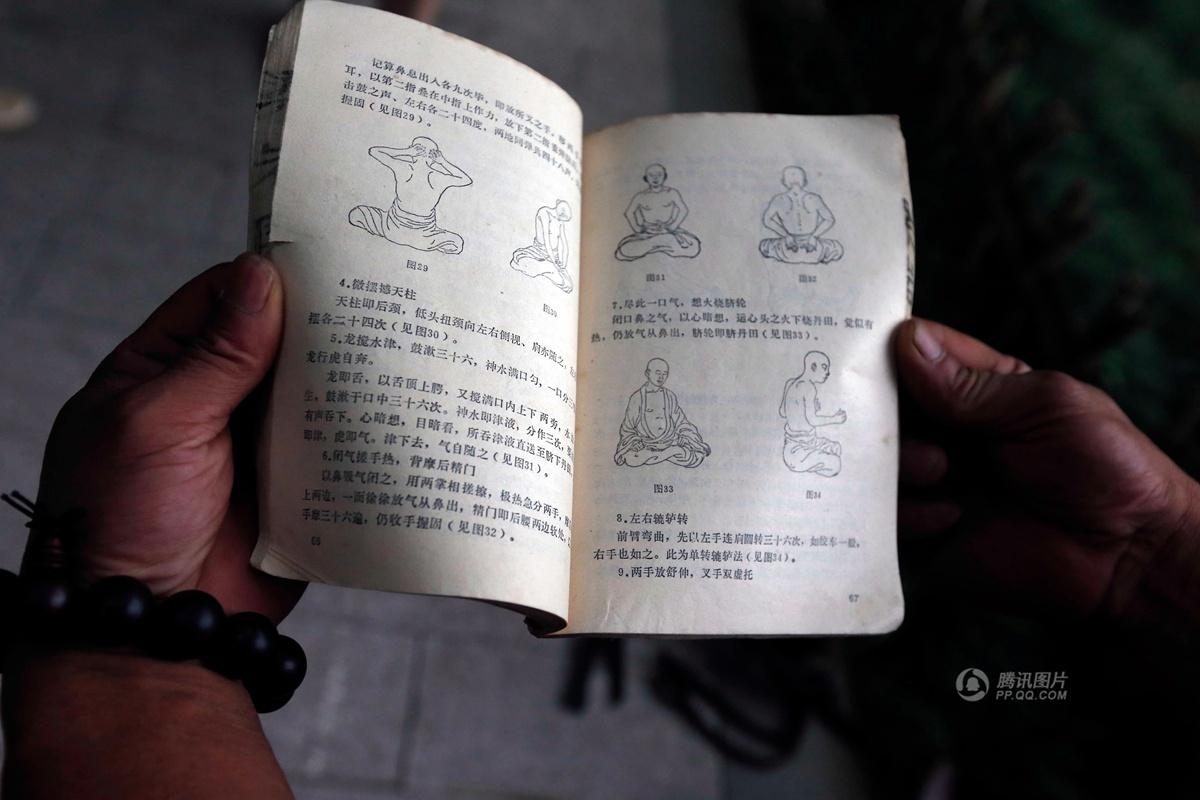 记算鼻息出入各九次毕，即放所叉之手，移两手
耳，以第二指叠在中指上作力，放下第二指重弹脑后
击鼓之声、左右各二十四度，两地同弹共四十八声，
握固（见图29）。
图29
图30
4.微摆撼天柱
天柱即后颈，低头扭颈向左右侧视、肩亦随之、
摆各二十四次（见图30）。
5.龙搅水津，鼓漱三十六，神水满口匀，一口分三
龙行虎自奔。
龙即舌，以舌顶上腭，又搅满口内上下两旁，水
生，鼓漱于口中三十六次。神水即津液，分作三次，
有声吞下。心暗想，目暗看，所吞津液直送至脐下丹
即津，虎即气。津下去，气自随之（见图31）。
6.闭气搓手热，背摩后精门
以鼻吸气闭之，用两掌相搓擦，极热急分两手，
上两边，一面徐徐放气从鼻出，精门即后腰两边软处，
手摩三十六遍，仍收手握固（见图32）。
66
图31
图32
7.尽此一口气，想火烧脐轮
闭口鼻之气，以心暗想，运心头之火下烧丹田，觉似有
热，仍放气从鼻出，脐轮即脐丹田（见图33）。
图33
图34
8.左右辘轳转
前臂弯曲，先以左手连肩圆转三十六次，如绞车一般，
右手也如之。此为单转辘轳法（见图34）。
9.两手放舒伸，叉手双虚托
67
腾讯图片
PP.QQ.COM